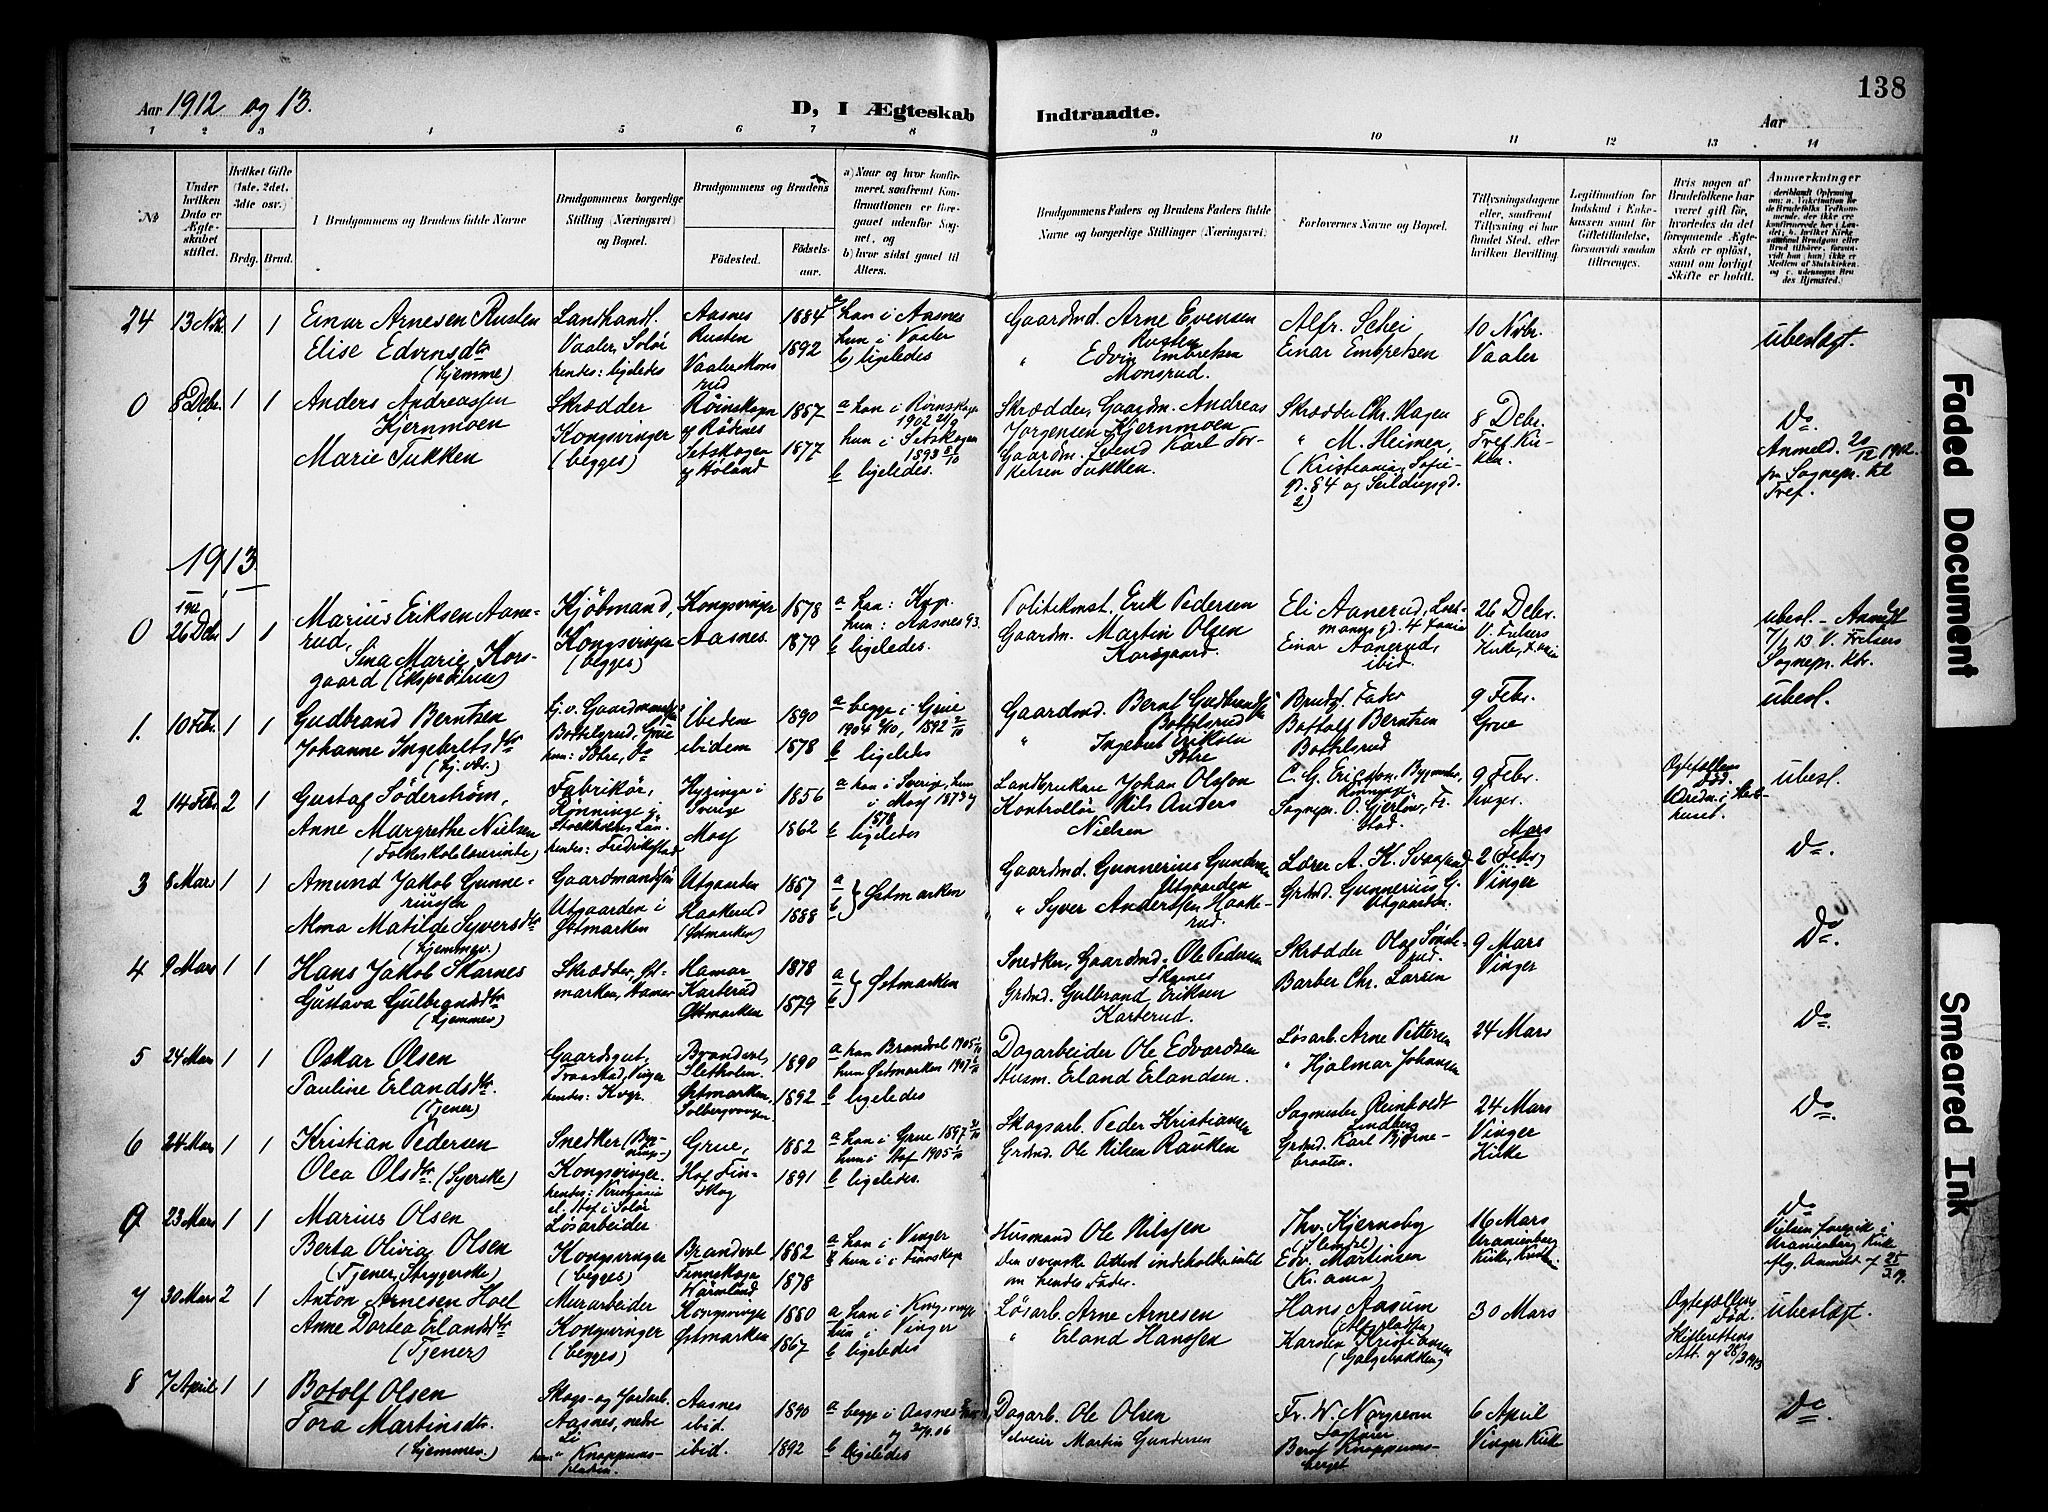 138
Aar 1912 og 13.
D, I Ægteskab Indtraadte.
Aar
1 2 3 4 5 6 7 8 9 10 11 12 13 14
№
Under hvilken Dato er Ægteskabet stiftet.
Hvilket Gifte (1ste, 2det, 3die osv.)
Brdg. Brud.
Brudgommens og Brudens fulde Navne
Brudgommens borgerlige Stilling (Næringsvei) og Bopæl.
Brudgommens og Brudens
Födested.
Födselsaar.
a) Naar og hvor konfirmeret, saafremt Konfirmationen er foregaaet udenfor Sognet, og
b) hvor sidst gaaet til Alters.
Brudgommens Faders og Brudens Faders fulde Navne og borgerlige Stillinger (Næringsvei)
Forlovernes Navne og Bopæl.
Tillysningsdagene eller, saafremt Tillysning ei har fundet Sted, efter hvilken Bevilling.
Legitimation for Indskud i Enkekassen samt for Giftetilladelse, forsaavidt saadan tiltrænges.
Hvis nogen af Brudefolkene har været gift för, hvorledes da det foregaaende Ægteskab er oplöst, samt om lovligt Skifte er holdt.
Anmærkninger
24 13 Nov. 1 1
Einar Arnesen Rusten
Elise Edvinsdtr
(hjemme)
Landhandl.
Vaaler, Solør
hendes: ligeledes
Aasnes
Rusten
Vaaler Monsrud
1884
1892
a han i Aasnes
hun i Vaaler
b) ligeledes
Gaardmd. Arne Evensen
Rusten
" Edvin Embretsen
Monsrud.
Alfr. Schei
Einar Embretsen
10 Nvbr.
Vaaler
ubeslægt.
0 8 Debr. 1 1
Anders Andreassen
Kjernmoen
Marie Tukken
Skrædder
Kongsvinger
(begges)
Rømskogn
af Rødenes
Setskogen
af Høland
1887
1877
a han i Rømskogn
1902
hun i Setskogen
1893
b ligeledes.
Skrædder, Gaardm. Andreas
Jørgensen Kjernmoen
Gaardm. Svend Karl Torkelsen Tukken.
Skrædder Chr. Hagen
" M. Heimen,
(Kristiania, Sofiegd. 84 og Seildugsgd. 2)
8 Debr.
Tref. Kirken.
Do
Anmeld. 20/12 1912.
fra Sognepr. til
Tref.
1913.
1912
0 26 Debr 1 1
Marius Eriksen Aanerud,
Sina Marie Korsgaard (Ekspeditrice)
Kjøbmand,
Kongsvinger
(begges)
Kongsvinger
Aasnes.
1878
1879
a han: Kgv.
hun: Aasnes 93.
b ligeledes.
Politikonst. Erik Pedersen
Gaardm. Martin Olsen
Korsgaard.
Eli Aanerud,
Einar Aanerud,
ibid.
26 Debr.
V. Frelsers
Kirke,
ubesl. - Anmeldt
7/1 13 V. Frelsers
Sognepr. Kbr.
1. 10 Febr. 1 1
Gudbrand Berntsen
Johanne Ingebretsdtr
(hj.vær.)
Gaardmandssøn
Bottelsrud, Grue
hun: Sætre, Do
Ibidem
ibidem
1890
1878
a begge i Grue
1904 2/10, 1892 2/10
b ligeledes
Gaardmd. Bernt Gudbrandsen
Bottelsrud
" Ingebret Eriksen
Sætre
Brudg. Fader
Bottolf Berntsen
Bottelsrud
9 Febr.
Grue
ubesl.
2 14 Febr. 2 1
Gustaf Söderström,
Anne Margrethe Nielsen
(Folkeskolelærerinde)
Fabrikør,
Rönninge i
Stockholms Län
hendes: Fredrikstad
Sverige
Moss
1856
1862
a han i Sverige, hun
i Moss 1873 og
1878
b ligeledes
Landbrukare Johan Olsson
Kontrollør Nils Anders
Nielsen
C. G. Ericsson, Byggmester,
Rönninge
Sognepr. O. Gjerløw, Fr.
stad.
9 Febr.
Vinger.
Ægtefællens
Død.
ubesl.
3 8 Mars 1 1
Amund Jakob Gunneriussen
Alma Matilde Syversdtr
(hjemmev.)
Gaardmandssøn
Utgaarden i
Østmarken
Utgaarden
Haakerud
(Østmarken)
1887
1888
a b } Østmarken
Gaardmd. Gunnerius Gundersen
Utgaarden
" Syver Anderssen Haakerud.
Lærer A. K. Svensrud
Grdmd. Gunnerius G.
Utgaarden.
Mars
2 (Febr)
Vinger
Do.
4 9 Mars 1 1
Hans Jakob Skarnes
Gustava Gulbrandsdtr
(hjemmev)
Skrædder, Østmarken, Hamar
Hamar
Karterud
Østmarken
1878
1879
a b } Østmarken
Snedker, Gaardmd. Ole Pedersen
Skarnes
Grdmd. Gulbrand Eriksen
Karterud.
Skrædder Olaf
Barber Chr. Larsen
9 Mars
Vinger
Do.
5 24 Mars 1 1
Oskar Olsen
Pauline Erlandsdtr.
(Tjener)
Gaardsgut,
Traastad, Vinger
hendes: Kvgr.
Brandval,
Sletholen.
Østmarken,
Solbergvangen
1890
1892
a han Brandval 1905
hun Østmarken 1907
b ligeledes
Dagarbeider Ole Edvardsen
Husm. Erland Erlandsen.
Løsarb. Arne Pettersen
" Hjalmar Johansen
24 Mars
Do.
6 24 Mars 1 1
Kristian Pedersen
Olea Olsdtr (Syerske)
Snedker
Kongsvinger.
hendes: Kristiania
el. Hof i Solør
Grue,
Hof Finskog
1882
1891
a han i Grue 1897
hun i Hof 1905
b ligeledes.
Skogsarb. Peder Kristiansen
Grdmd. Ole Nilsen Rauken
Sagmester Reinholdt
Lindberg
Grdmd. Karl Bjørnebraaten.
24 Mars
Vinger
Kirke
Do
0 23 Mars 1 1
Marius Olsen
Berta Olivia Olsen
(Tjener, Strygerske)
Løsarbeider
Kongsvinger
(begges)
Brandval
Finnskoga
Wärmland
1882
1878
a han i Vinger
b hun i Finskoga
Husmand Ole Nilssen
Den svenske Attest indeholder intet
om hendes Fader.
Thv. Kjernsby
Edv. Martinsen
(Kr.ania)
16 Mars
Uranienborg
Kirke,
Do
Vielsen foregik i
Uranienborg Kirke
iflg. Anmeld. af
7 30 Mars 2 1
Anton Arnesen Hoel
Anne Dortea Erlandsdtr
(Tjener)
Murarbeider
Kongsvinger
(begges)
Kongsvinger
Østmarken
1880
1867
a han i Kongsvinger
hun i Vinger
b ligeledes
Løsarb. Arne Arnesen
" Erland Hanssen
Hans Aasum
Karsten Kristiansen
(Galgebakken)
30 Mars
Ægtefællens
Død.
Skifterettens
Att. af 28/3 1913
ubeslægt.
8 7 April 1 1
Botolf Olsen
Tora Martinsdtr.
(hjemmev.)
Skogs- og Jordarb.
Aasnes, nedre
Li
Aasnes
ibid.
ibid.
1890
1892
a begge i Aasnes
b ligeledes
Dagarb. Ole Olsen
Selveier Martin Gundersen
Fr. W. Norgreen
Bernt Knappumsberget
6 April
Vinger Kirke
Do
Faded Document
Smeared Ink